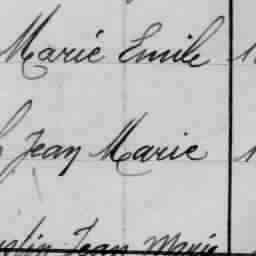 Marie Emile
Jean Marie
Jean Marie